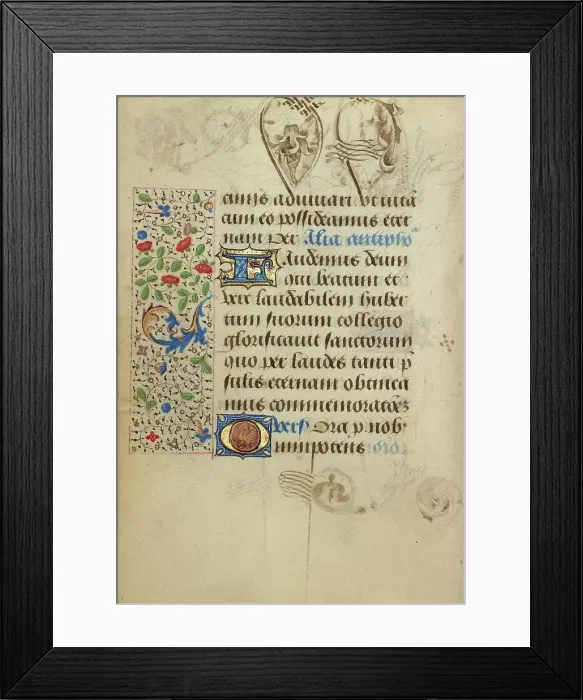 adiuuari. vt uitā
cum eo possideamus eter
nam Per Alia antipho
Laudemus deum
qui beatum et
per laudabilem huber
tum suorum collegio
glorificauit sanctorum
quo per laudes tanti p
sulis eternam obtinea
mus
Ora p nob
Omnipotens oro